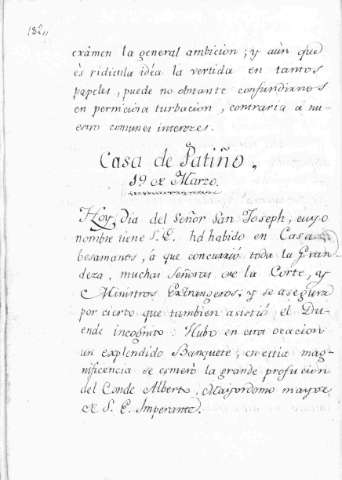 182,,
exámen la general ambicion; y aún que
ès ridicula idéa la vertida en tantos
papeles, puede no obstante confundirnos
en perniciosa turbacion, contraria à nu-
estro comunes intereses.
Casa de Patiño.
19 de Marzo.
Hoy, Dia del Señor San Joseph, cuyo
nombre tiene S. E. há habido en Casa
besamanos, à que concurrió toda la Gran
deza, muchas Señoras de la Corte, y
Ministros Extrangeros, y se asegura
por cierto que tambien asistió el Du-
ende incognito: Hubo en esta ocasion
un explendido Banquete, en cuia mag-
nificencia se esmeró la grande profusion
del Conde Alberto, Mayordomo mayor
de S. E. Imperante.